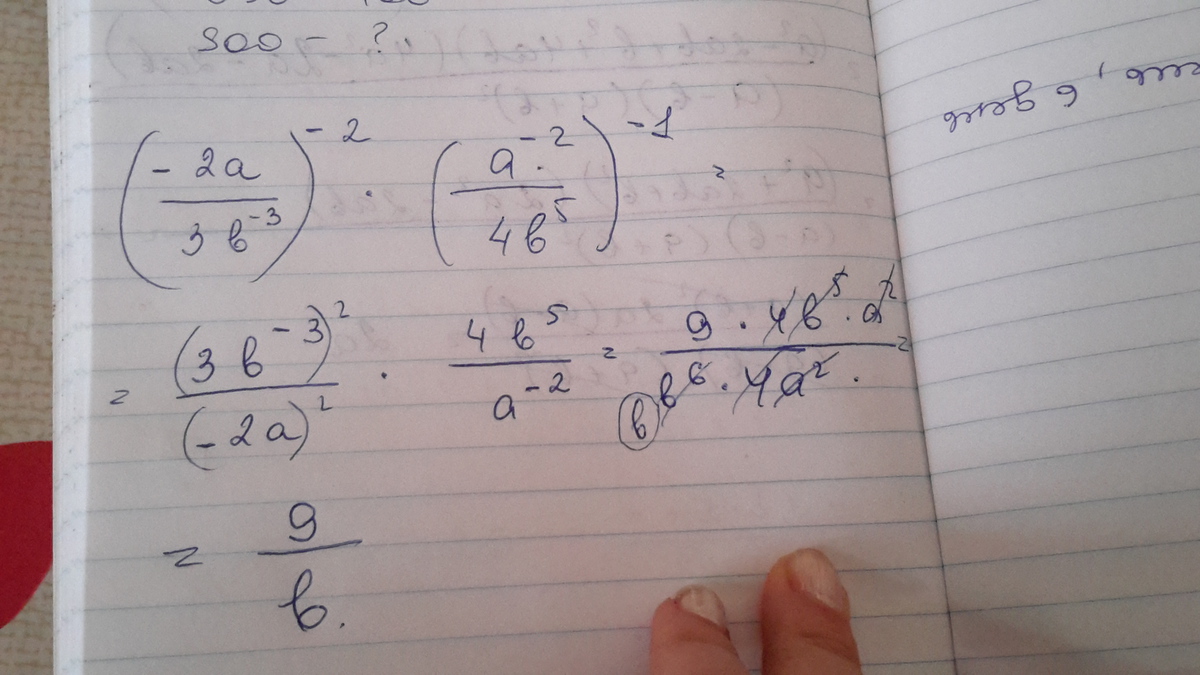 300 – ?
(-2a / 3b⁻³)⁻² · (a⁻² / 4b⁵)⁻¹ =
= (3b⁻³)² / (-2a)² · 4b⁵ / a⁻² = 9 · 4b⁵ · a² / b⁶ · 4a² · =
b
= 9 / b.
, в день